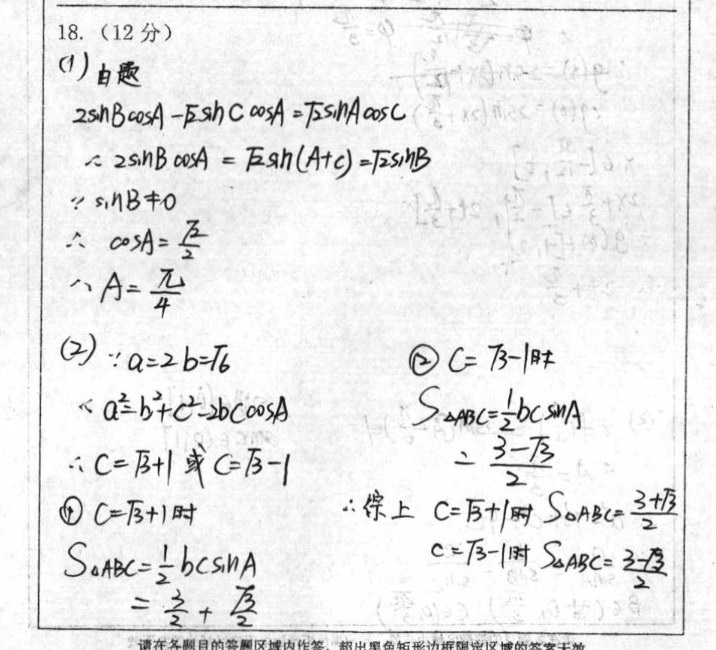 18.（12分）
(1) 由题
2sinBcosA-√2sinCcosA=√2sinAcosC
∴ 2sinBcosA = √2sin(A+C)=√2sinB
∵ sinB≠0
∴ cosA=√2/2
∴ A=π/4
(2) ∵ a=2 b=√6
∵ a²=b²+c²-2bccosA
∴ C=√3+1 或 C=√3-1
① C=√3+1时
S△ABC=1/2bcsinA
= 3/2 + √3/2
② C=√3-1时
S△ABC=1/2bcsinA
= (3-√3)/2
∴综上 C=√3+1时 S△ABC=(3+√3)/2
C=√3-1时 S△ABC=(3-√3)/2
请在各题目的答题区域内作答，超出黑色矩形边框限定区域的答案无效